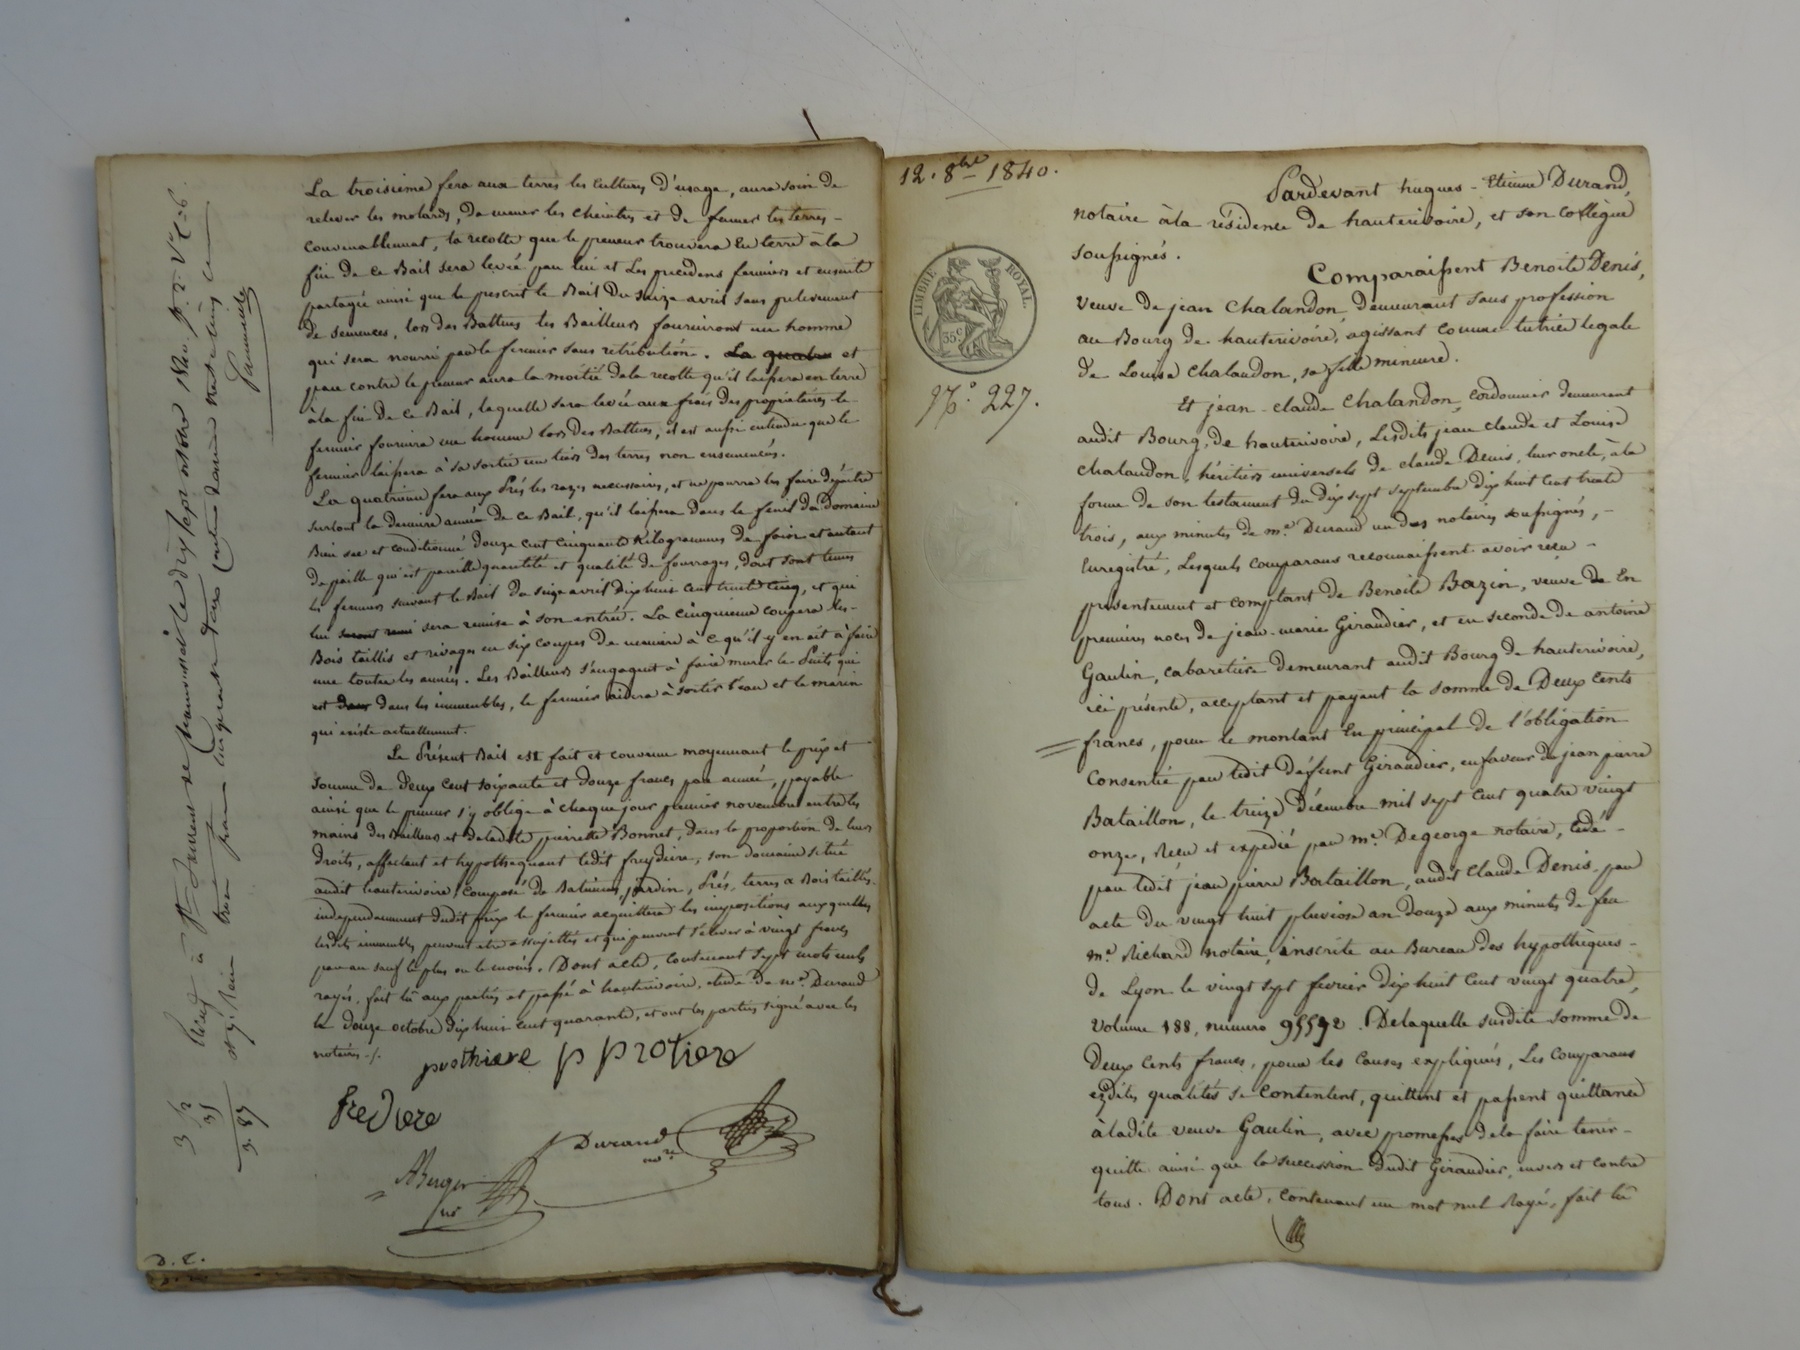 La troisieme fera aux terres les cultures d'usage, aura soin de
relever les molards, de mener les cheintres et de fumer les terres -
convenablement, la recolte que le preneur trouvera en terre à la
fin de ce Bail sera levée par lui et les precedens fermiers et ensuite
partagée ainsi que le prescrit le Bail du seize avril sans prelevement
de semences, lors des Battues les Bailleurs fourniront un homme
qui sera nourri par le fermier sans retribution. La quatre et
par contre le preneur aura la moitié de la recolte qu'il laissera en terre
à la fin de ce Bail, laquelle sera levée aux frais des propriétaires le
fermier fournira un homme lors des Battues, il est aussi entendu que le
fermier laissera à sa sortie un tiers des terres non ensemencés.
La quatrieme fera aux Prés les razes necessaires, et ne pourra les faire dépaître
surtout la derniere année de ce Bail, qu'il laissera dans le fenil du Domaine
Bien sec et conditionné douze cent cinquante Kilogrammes de foin et autant
de paille qui est pareille quantité et qualité de fourrages, dont sont tenus
les fermiers suivant le Bail du seize avril dix huit cent trente cinq, et qui
lui seront remi sera remise à son entrée. La cinquieme coupera les -
Bois taillis et rivages en six coupes de maniere à ce qu'il y en ait à faire
une toutes les années. Les Bailleurs s'engagent à faire murer le Puits qui
est dans dans les immeubles, le fermier aidera à sortir l'eau et le marin
qui existe actuellement.
Le Présent Bail est fait et convenu moyennant le prix et
somme de Deux cent soixante et douze francs par année, payable
ainsi que le preneur s'y oblige à chaque jour premier novembre entre les
mains des Bailleurs et de ladite pierrette Bonnet, dans la proportion de leurs
droits, affectant et hypothequant ledit freydiere, son domaine situé
audit hauterivoire, composé de Batimens, jardin, Prés, terres a Bois taillis.
independamment dudit prix le fermier acquittera les impositions auxquelles
lesdits immeubles peuvent etre assujettis et qui peuvent s'elever à vingt francs
par an sauf le plus ou le moins. Dont acte, contenant Sept mots nuls
rayés, fait lû aux parties et passé à hauterivoire, etude de Me Durand
le douze octobre dix huit cent quarante, et ont les parties signé avec les
notaires ./.
prothiere p protiere
frediere
Durand
nore
Berger
nre
D. C.
12. 8bre 1840.
TIMBRE ROYAL
35c
No. 227.
Pardevant hugues - Etienne Durand,
notaire à la résidence de hauterivoire, et son collègue
soussignés.
Comparaissent Benoite Denis,
veuve de jean Chalandon, demeurant sans profession
au Bourg de hauterivoire, agissant comme tutrice legale
de Louise Chalandon, sa fille mineure.
Et jean - claude Chalandon, cordonnier demeurant
audit Bourg, de hauterivoire, Lesdits jean claude et Louise
chalandon, héritiers universels de claude Denis, leur oncle, à la
forme de son testament du dix sept septembre dix huit cent trente
trois, aux minutes de me. Durand un des notaires soussignés, -
Enregistré, Lesquels comparans reconnaissent avoir reçu -
présentement et comptant de Benoite Bazin, veuve de En
premieres noces de jean-marie Giraudier, et en seconde de antoine
Gaulin, cabaretiere demeurant audit Bourg de hauterivoire,
ici présente, acceptant et payant la somme de Deux cents
francs, pour le montant En principal de l'obligation
Consentie par ledit défunt Giraudier, en faveur de jean pierre
Bataillon, le treize Décembre mil sept cent quatre vingt
onze, Reçu et expedié par me. Degeorge notaire, cédé -
par ledit jean pierre Bataillon, audit Claude Denis, par
acte du vingt huit pluviose an douze aux minutes de feu
me. Richard notaire, inscrite au Bureau des hypothèques -
de Lyon le vingt sept fevrier dix huit cent vingt quatre,
volume 188, numero 95592. De laquelle susdite somme de
Deux cents francs, pour les causes expliquées, Les Comparans
ezdites qualités se contentent, quittent et passent quittance
à ladite veuve Gaulin, avec promesses de la faire tenir -
quitte ainsi que la succession dudit Giraudier, envers et contre
tous. Dont acte, contenant un mot nul Rayé, fait lû